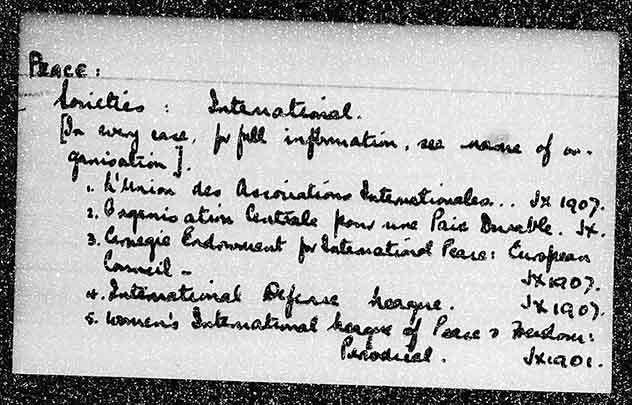 PEACE:
Societies : International.
[In every case, for full information, see name of or-
ganisation].
1. L'Union des Associations Internationales... JX 1907.
2. Organisation Centrale pour une Paix Durable. JX.
3. Carnegie Endowment for International Peace: European
Council - JX1907.
4. International Defense League. JX1907.
5. Women's International League of Peace & Freedom:
Periodical. JX1901.